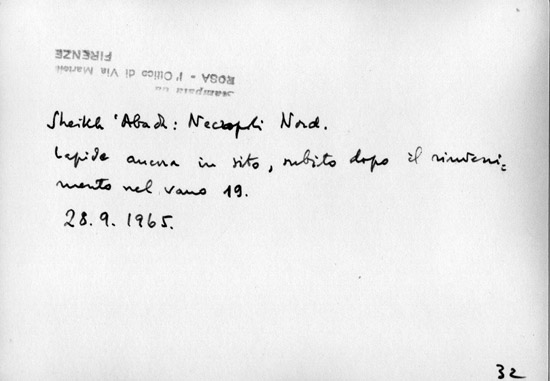 Stampata da
ROSA - l'Ottico di Via Martelli
FIRENZE
Sheikh 'Abadh: Necropoli Nord.
Lapide ancora in sito, subito dopo il rinveni-
mento nel vano 19.
28.9.1965.
32